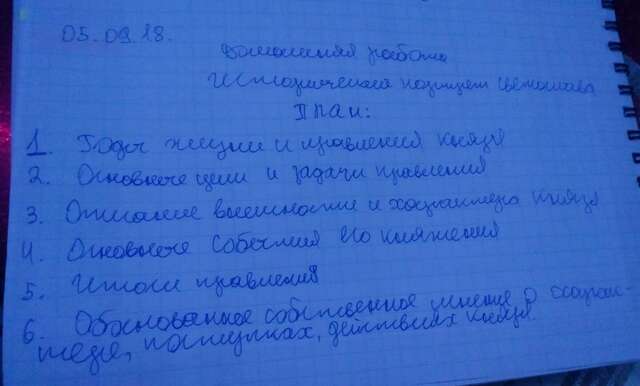 05.09.18.
Домашняя работа
Исторический портрет Святослава
План:
1. Годы жизни и правления князя
2. Основные цели и задачи правления
3. Описание внешности и характера князя
4. Основные события его княжения
5. Итоги правления
6. Обоснованное собственное мнение о харак-
тере, поступках, действиях князя